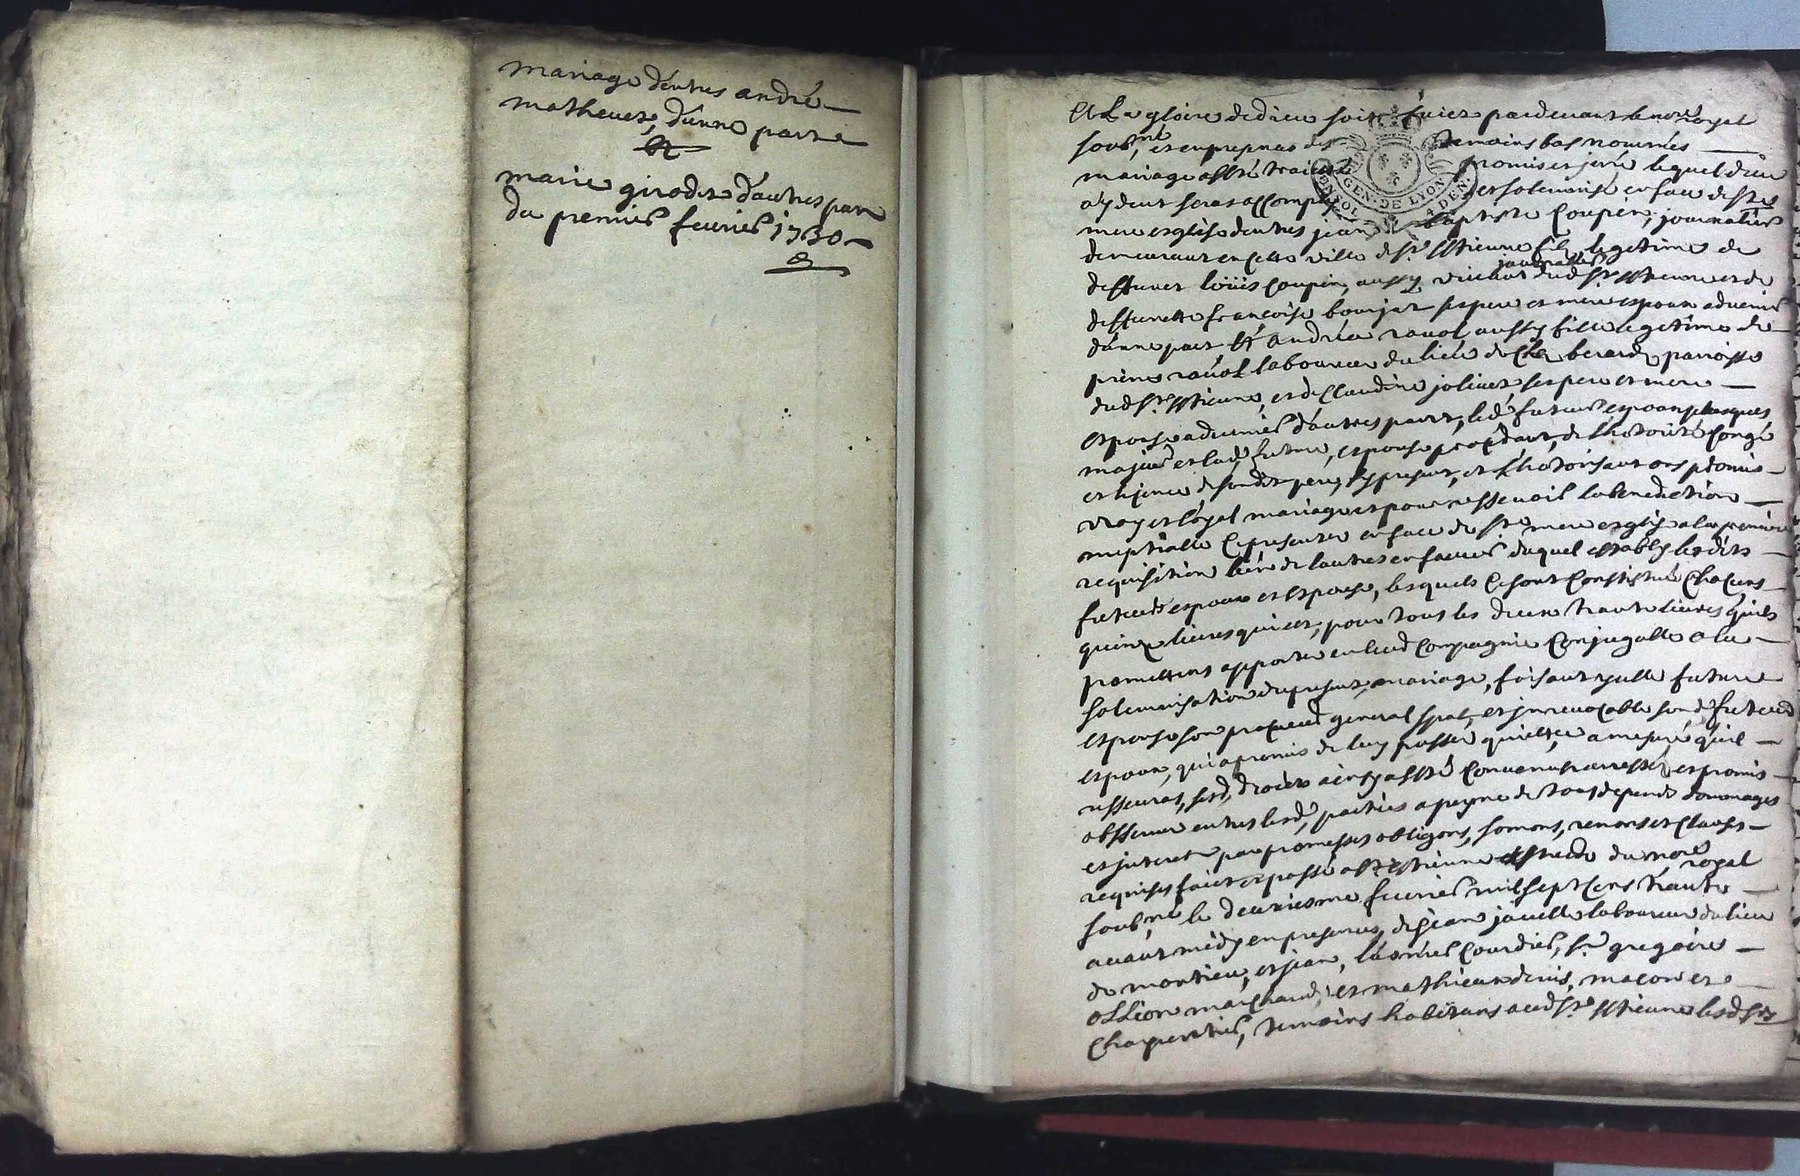 mariage d'entres andré
matheuet, d'unne part
et
marie girodet d'autres part
du premier feurier 1730
A La gloire de dieu soit faict pardeuant le no.re royal
soub.né et en presence des temoins bas nommés
mariage a esté traicté promis et juré lequel dieu
aydeut seras accomply et solemnisé en face de s.te
mere esglise d'entres jean baptiste Coupin, journallier
demeurant en cette ville de s.t estienne fils legetime de
deffunct loüis Coupin, aussy viuant journallier dud s.t estienne et de
deffuncte francoise bourjat ses pere et mere espoux aduenir
d'unne part et andréa rauol aussy fille legetime de
pierre rauol laboureur du lieu de berard, parroisse
dud s.t estienne, et de Claudine joliuet ses pere et mere
espouse aduenir d'autres part, led futeur espoux
majeur et lad future espouse procédant de l'hotorité congé
et lisence de sondit pere, sy present, et l'hotorisant ons promis
vray et léyal mariage et pour resseuoir la benediction
nuptialle ce presenter en face de s.te mere esglise a la premiere
requisition l'un de l'autres en faueur duquel establis lesdits
futeurs espoux et espouse, lesquels ce sont Constitué Chacuns
quinze liures qui est, pour tous les deux trante liures quils
promettens apporter en leurd Compagnie Conjugalle a la
solemnisation du present mariage, faisant ycelle future
espouse son procureur general spal, et jrreuocable sond futeur
espoux, qui a promis de luy passer quittce a mesure quil
resseuras, sesd, droicts ainsy a esté Conuenu arresté, et promis
obseruer entres lesd, parties a peyne de tous depends domages
et jnterets par promesses obligons, somons, renons et Clauses
requises faict et passé a s.t estienne estude du no.re royal
soub.né le deuxiesme feurier mil sept Cens trante
auant midy en presences de jean jauelle laboureur du lieu
de montieu, et jean, Courdier, s.r gregoire
ollion marchand, et mathieu denis, macon et
Charpentier, temoins habitans aud s.t estienne lesd
GEN. DE LYON